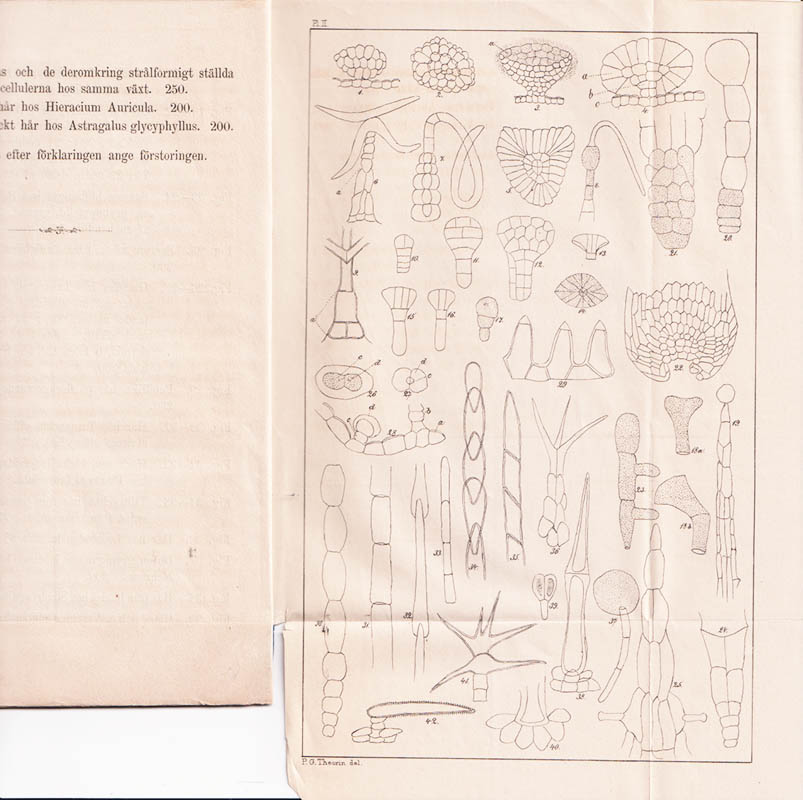 s och de deromkring strålformigt ställda
cellulerna hos samma växt. 250.
hår hos Hieracium Auricula. 200.
ckt hår hos Astragalus glycyphyllus. 200.
efter förklaringen ange förstoringen.
P. II
a
a
b
c
1.
2.
3.
4.
a
6
7.
5.
8.
21.
20.
9.
a
10.
11.
12.
13.
14.
15
16.
17.
22.
29
c
d
26
d
c
27
c
d
28
b
a
19
18a.
23.
18b
30
31
32
33
34.
35.
36.
39.
37.
24.
41.
38.
25.
42.
40.
P. G. Theorin del.